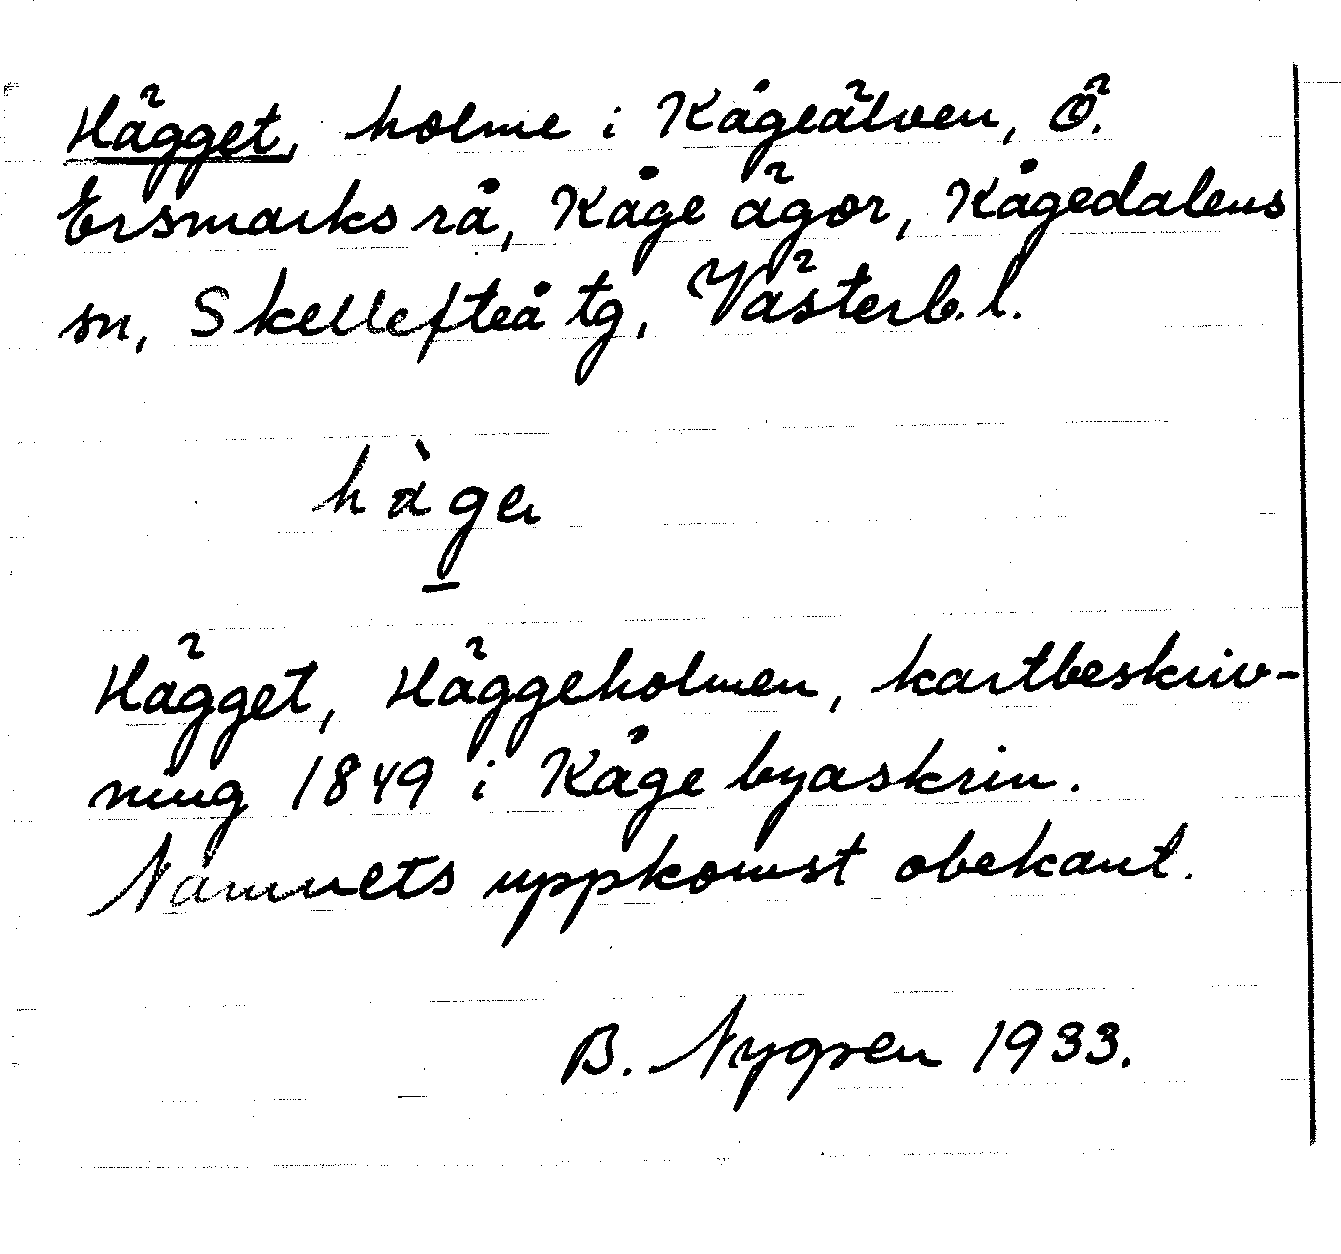 Hägget, holme i Kågeälven, Ö.
Ersmarks rå, Kåge ägor, Kågedalens
sn, Skellefteå tg, Västerb. l.
hàger
Hägget, Häggeholmen, kartbeskriv-
ning 1849 i Kåge byaskrin.
Namnets uppkomst obekant.
B. Nygren 1933.